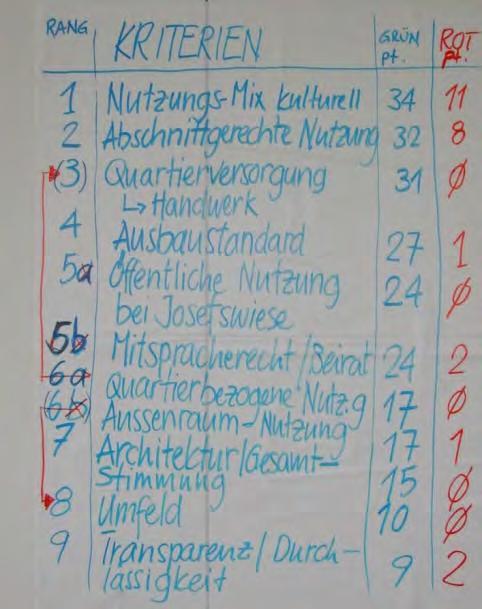 RANG KRITERIEN GRÜN pt. ROT pt.
1 Nutzungs-Mix kulturell 34 11
2 Abschnittgerechte Nutzung 32 8
(3) Quartierversorgung 31 0
↳ Handwerk
4 Ausbaustandard 27 1
5a Öffentliche Nutzung 24 0
bei Josefswiese
5b Mitspracherecht/Beirat 24 2
6a Quartierbezogene Nutz.g 17 0
(6b) Aussenraum-Nutzung 17 1
7 Architektur/Gesamt-
Stimmung 15 0
8 Umfeld 10 0
9 Transparenz/Durch-
lässigkeit 9 2